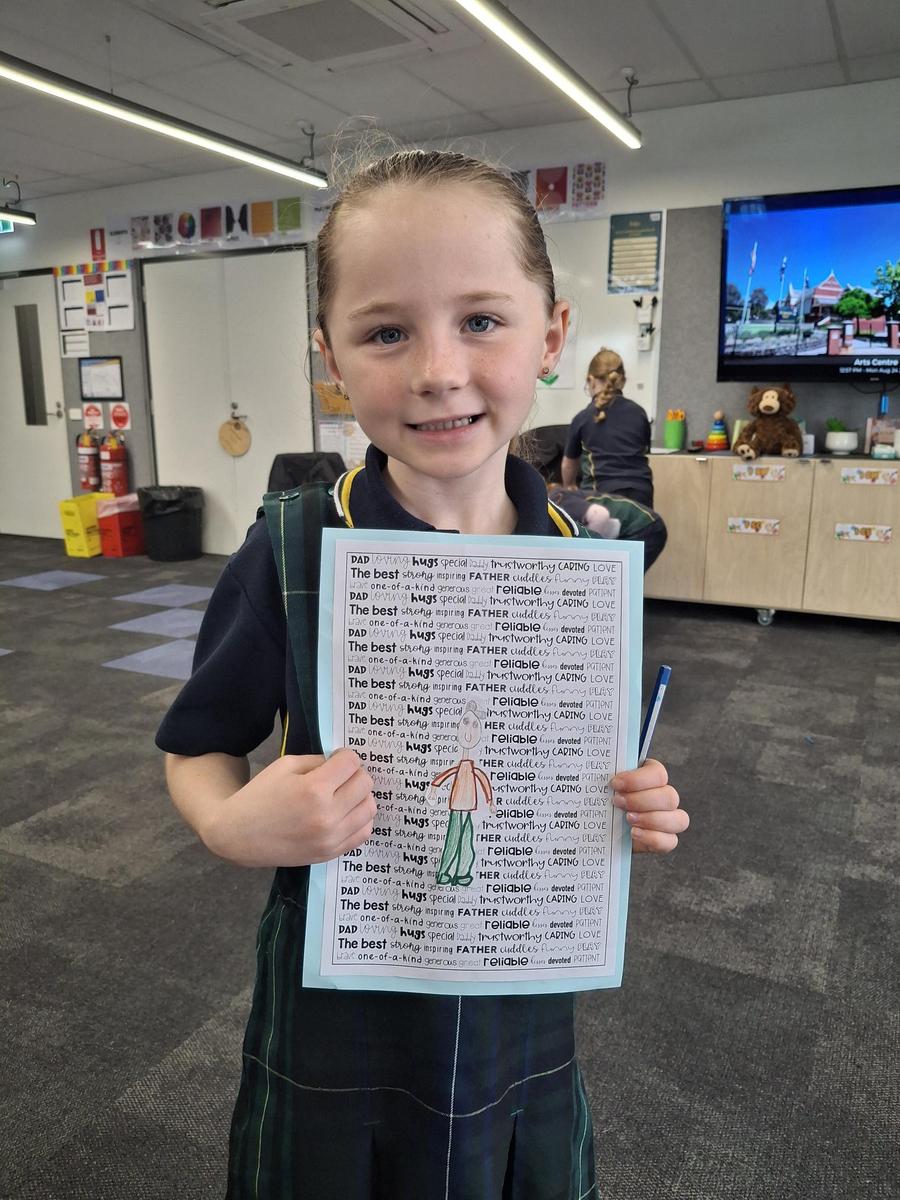 Arts Centre
12:57 PM - Mon Aug 24
DAD loving hugs special Daddy trustworthy CARING LOVE
The best strong inspiring FATHER cuddles funny PLAY
brave one-of-a-kind generous great reliable hero devoted PATIENT
DAD loving hugs special Daddy trustworthy CARING LOVE
The best strong inspiring FATHER cuddles funny PLAY
brave one-of-a-kind generous great reliable hero devoted PATIENT
DAD loving hugs special Daddy trustworthy CARING LOVE
The best strong inspiring FATHER cuddles funny PLAY
brave one-of-a-kind generous great reliable hero devoted PATIENT
DAD loving hugs special Daddy trustworthy CARING LOVE
The best strong inspiring FATHER cuddles funny PLAY
brave one-of-a-kind generous reliable hero devoted PATIENT
DAD loving hugs special trustworthy CARING LOVE
The best strong inspiring THER cuddles funny PLAY
brave one-of-a-kind reliable hero devoted PATIENT
DAD loving hugs special trustworthy CARING LOVE
The best strong inspiring HER cuddles funny PLAY
one-of-a-kind reliable hero devoted PATIENT
loving hugs trustworthy CARING LOVE
best strong R cuddles funny PLAY
one-of-a-kind eliable hero devoted PATIENT
loving hugs special trustworthy CARING LOVE
best strong inspiring THER cuddles funny PLAY
one-of-a-kind generous reliable hero devoted PATIENT
DAD loving hugs special trustworthy CARING LOVE
The best strong inspiring THER cuddles funny PLAY
brave one-of-a-kind generous reliable hero devoted PATIENT
DAD loving hugs special Daddy trustworthy CARING LOVE
The best strong inspiring FATHER cuddles funny PLAY
brave one-of-a-kind generous great reliable hero devoted PATIENT
DAD loving hugs special Daddy trustworthy CARING LOVE
The best strong inspiring FATHER cuddles funny PLAY
brave one-of-a-kind generous great reliable hero devoted PATIENT